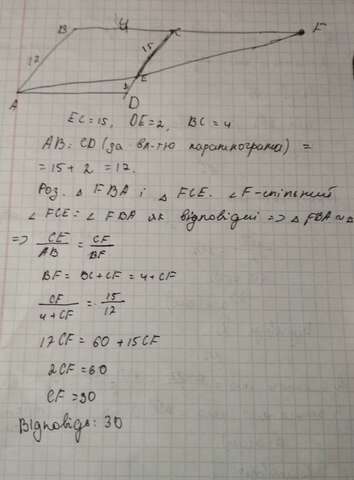 B 4 C F
17 15
E
A D
EC=15, DE=2, BC=4
AB=CD (за вл-тю паралелограма) =
= 15+2 = 17.
Роз. △ FBA і △ FCE. ∠F-спільний
∠FCE = ∠FBA як відповідні => △FBA ~ △
=> CE/AB = CF/BF
BF = BC+CF = 4+CF
CF/4+CF = 15/17
17CF = 60+15CF
2CF=60
CF=30
Відповідь: 30